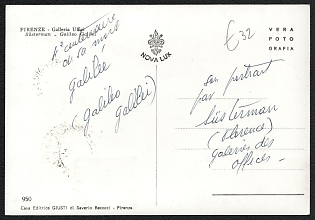 FIRENZE - Galleria Uffizi
Sustermann - Galileo Galilei
4e centenaire
de sa mort
galilée
(galileo
galilei)
NOVA LUX
€32
VERA
FOTO
GRAFIA
son portrait
par
Süsterman
(Florence)
galeries des
offices -
950
Casa Editrice GIUSTI di Saverio Becocci - Firenze